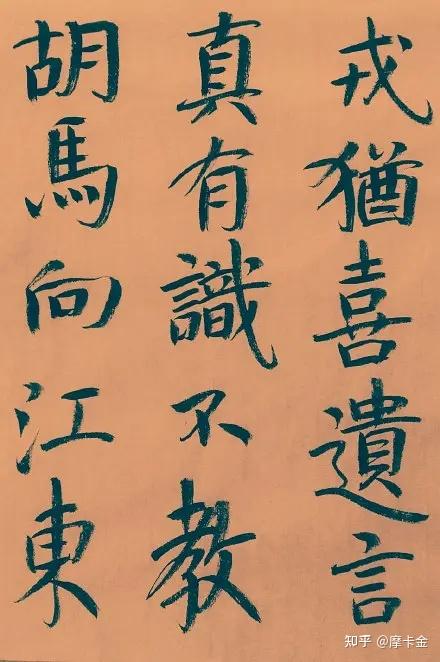 戎猶喜遺言
真有識不教
胡馬向江東
知乎 @摩卡金